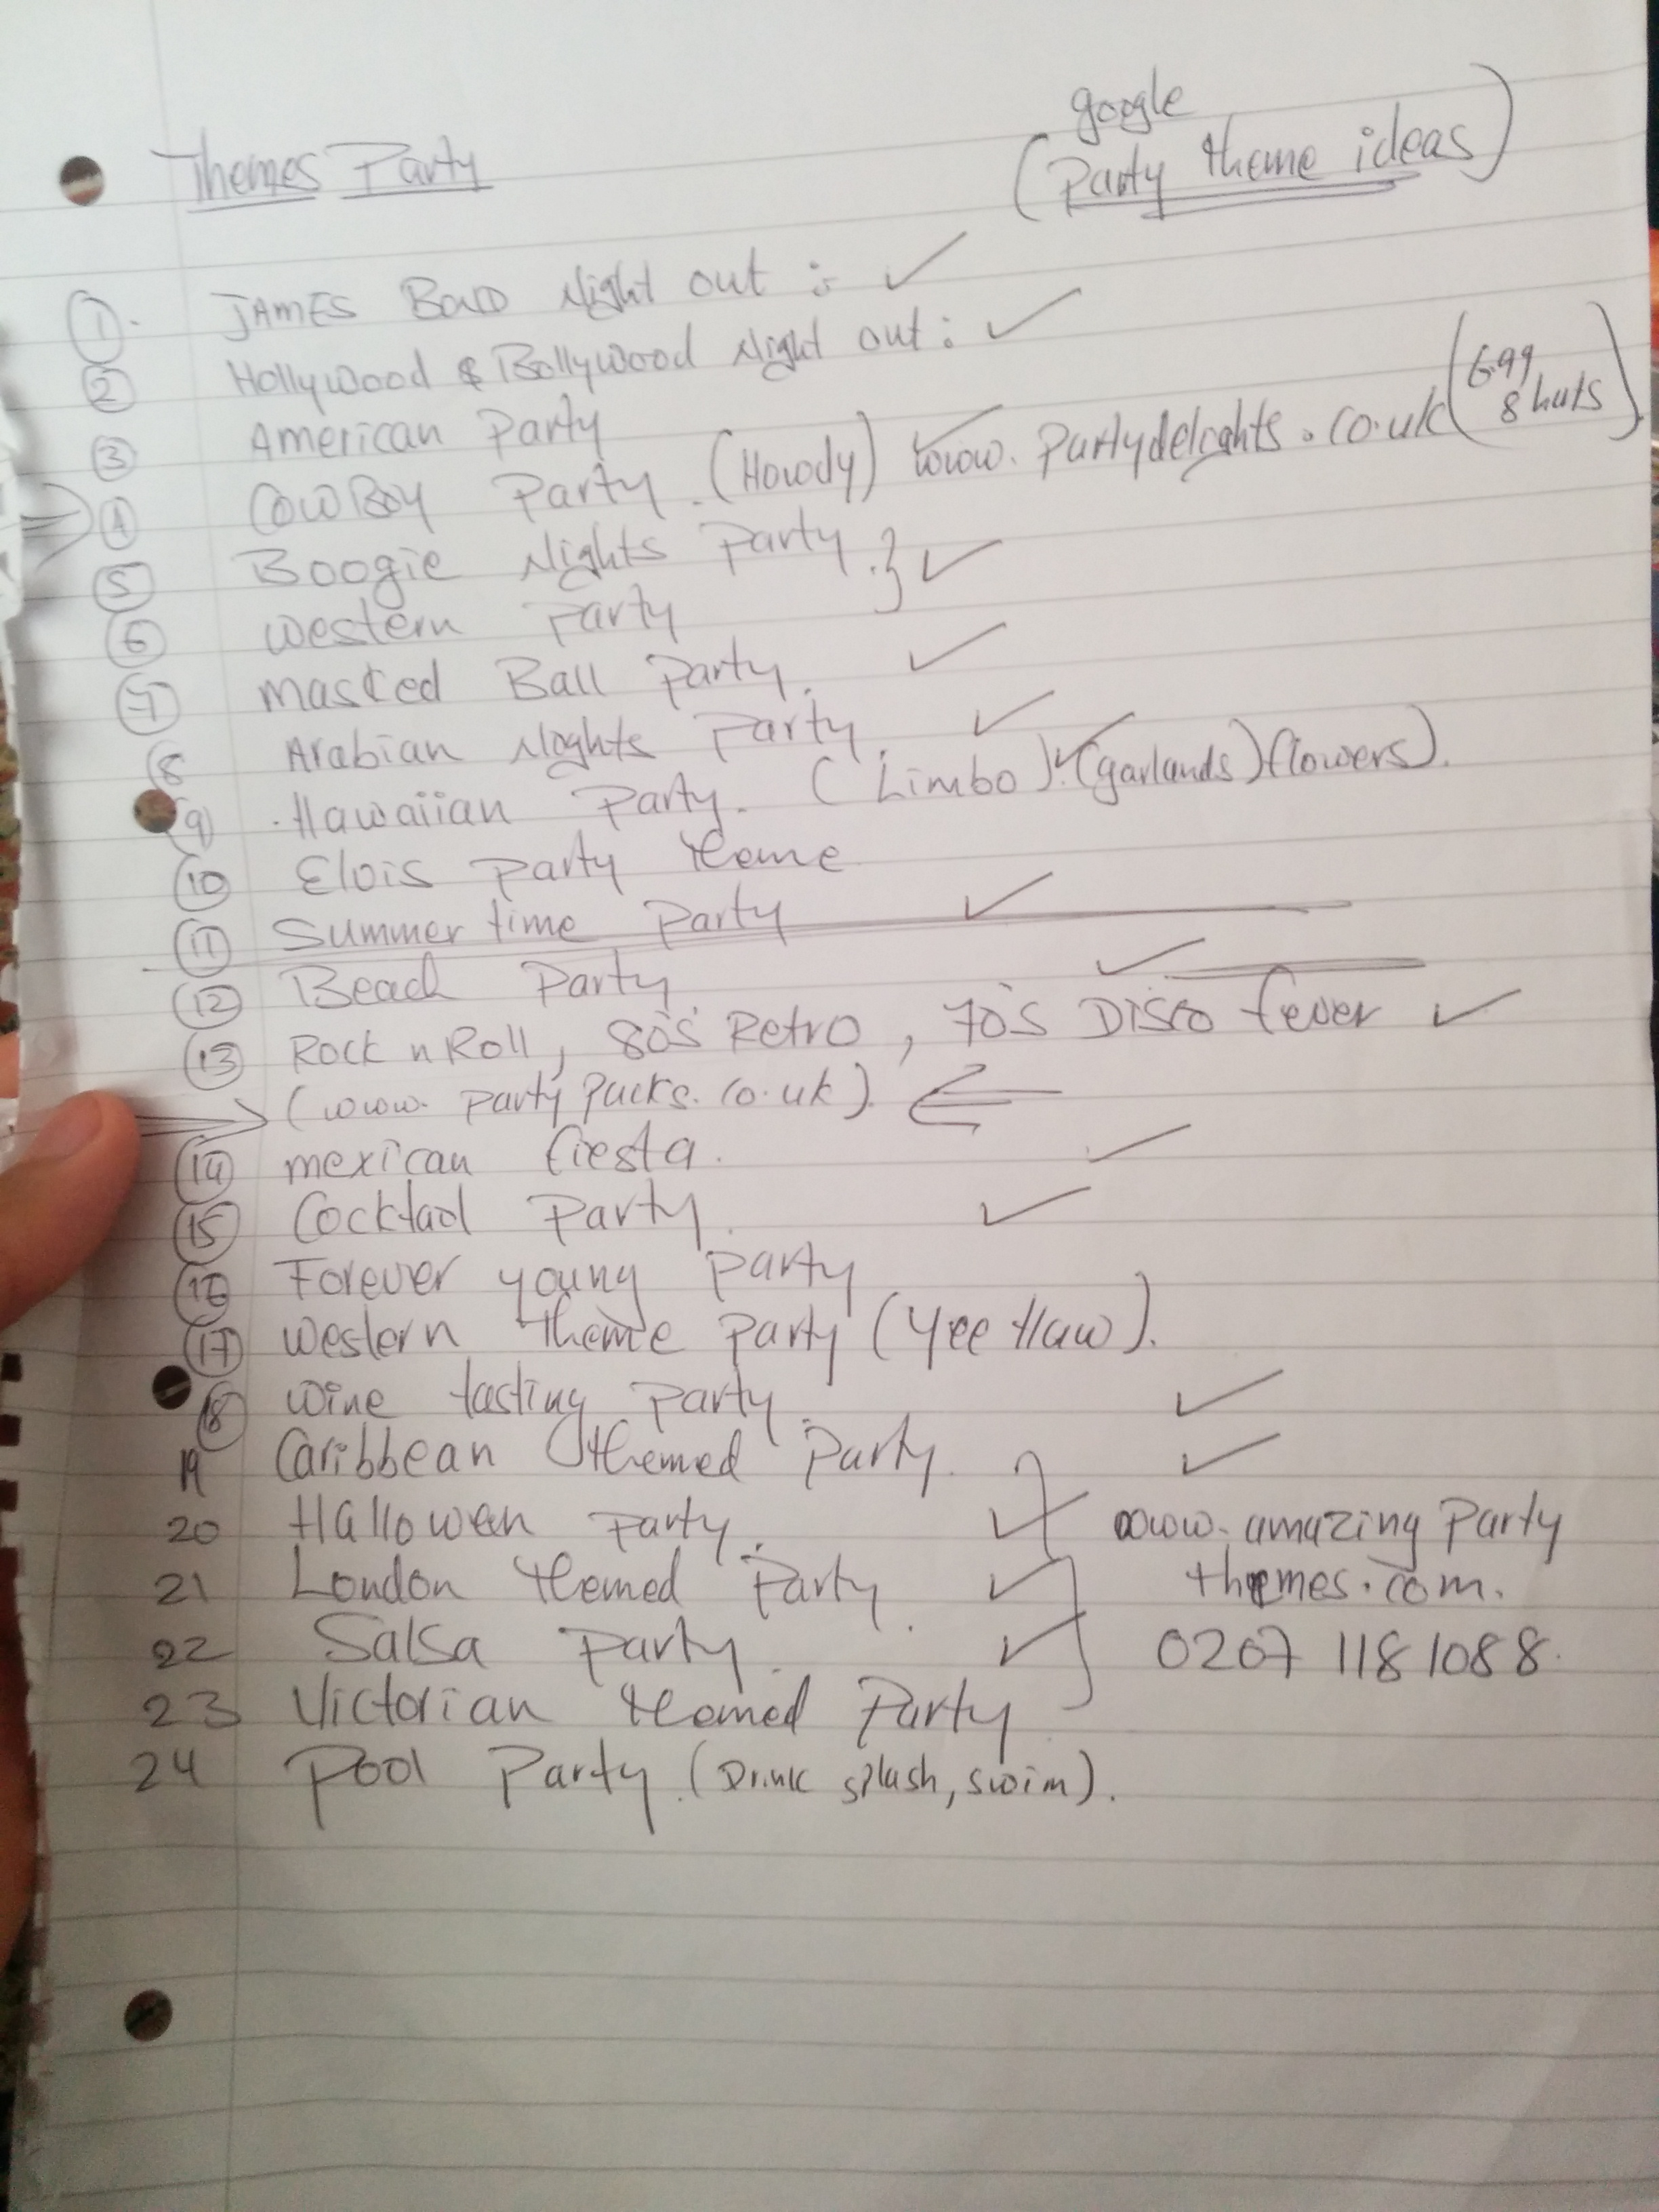 google
Themes Party (Party theme ideas)
1. JAMES BOND Night out : ✓
2 Hollywood & Bollywood Night out : ✓
3 American Party
4 COWBOY Party. (Howdy) ✓ www.Partydelights.co.uk (6.99 8 hats)
5 Boogie Nights Party. } ✓
6 Western Party
7 Masked Ball Party. ✓
8 Arabian Nights Party. ✓
9 Hawaiian Party. (Limbo) ✓ (garlands) flowers).
10 Elvis party theme
11 Summer time Party ✓
12 Beach Party ✓
13 Rock n Roll, 80's Retro, 70's Disco fever ✓
(www.partypacks.co.uk).
14 mexican fiesta. ✓
15 Cocktail Party. ✓
16 Forever young party
17 western theme party (Yee Haw).
18 wine tasting party. ✓
19 Caribbean themed Party. ✓
20 Halloween Party. ✓ www.amazing Party
21 London themed Party. ✓ themes.com.
22 Salsa party. ✓ 0207 118 1088.
23 Victorian themed Party
24 Pool Party. (Drink splash, swim).